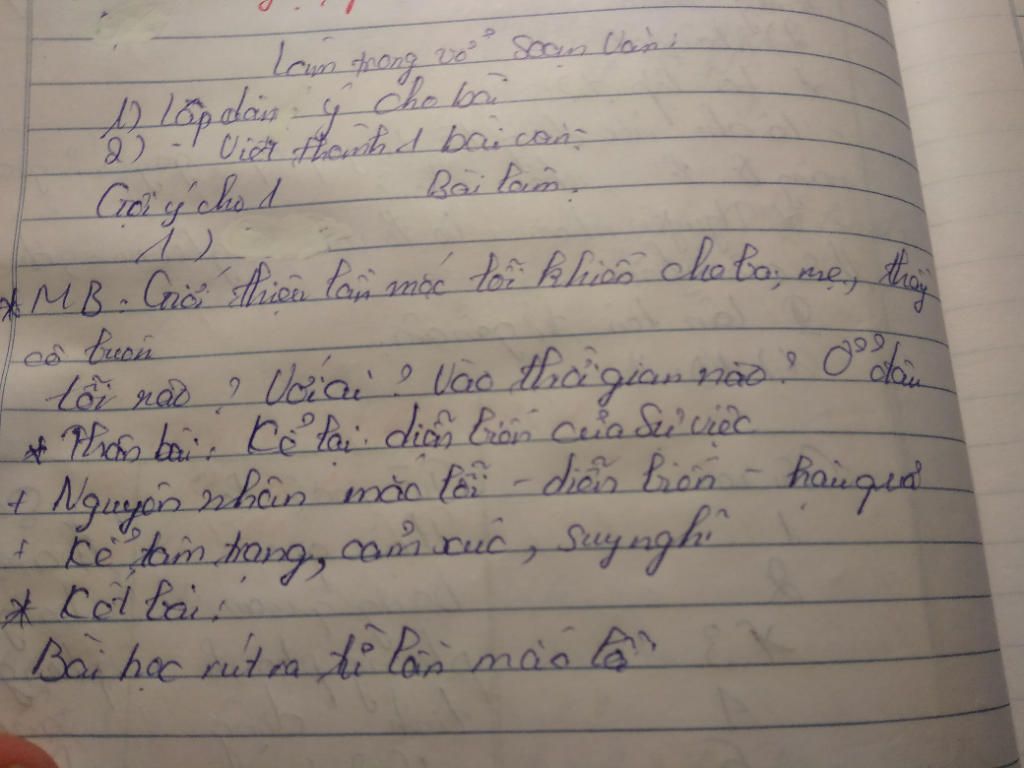 Làm trong vở soạn văn:
1) Lập dàn ý cho bài
2) - Viết thành 1 bài văn.
Gợi ý cho 1 Bài làm.
1)
* MB: Giới thiệu lần mắc lỗi khiến cho ba, mẹ, thầy
cô buồn
lỗi nào? Với ai? Vào thời gian nào? Ở đâu
* Thân bài: Kể lại diễn biến của sự việc
+ Nguyên nhân mắc lỗi - diễn biến - hậu quả
+ Kể tâm trạng, cảm xúc, suy nghĩ
* Kết bài:
Bài học rút ra từ lần mắc lỗi